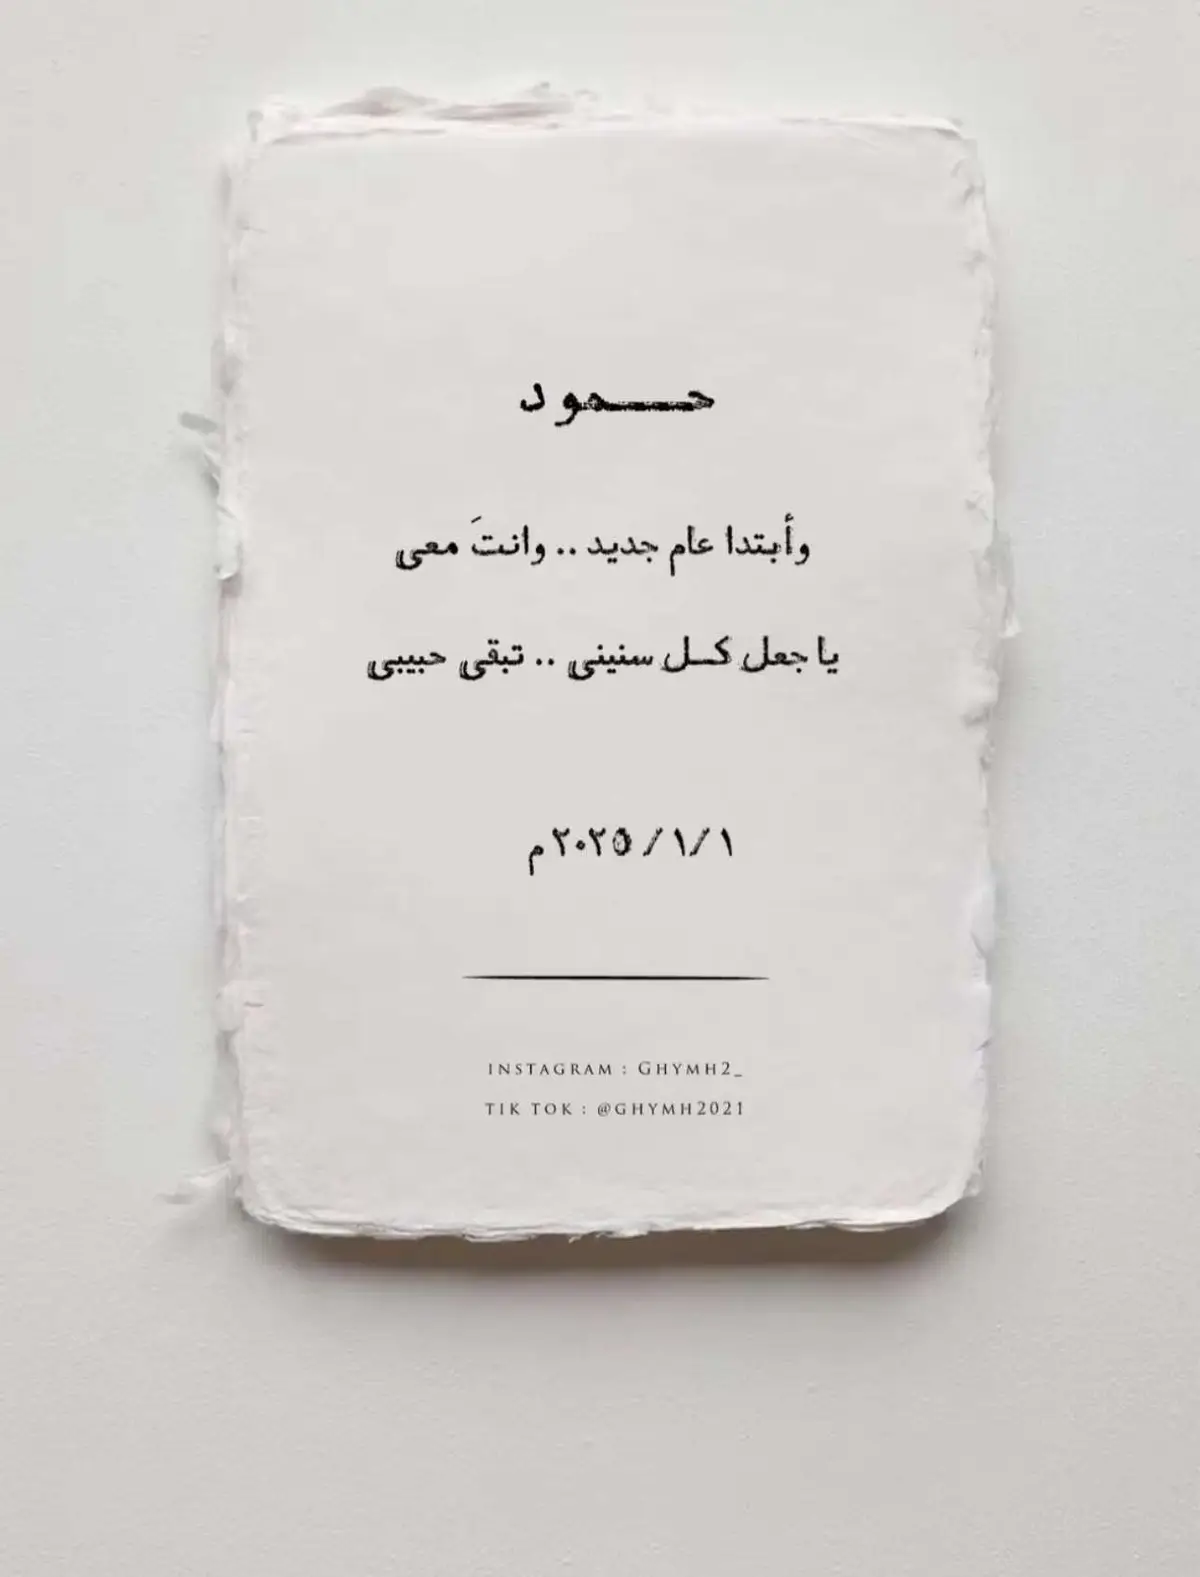 حـــمود
وأبتدا عام جديد .. وانتَ معي
يا جعل كـل سنيني .. تبقى حبيبي
١ /١ / ٢٠٢٥ م
INSTAGRAM : GHYMH2_
TIK TOK : @GHYMH2021